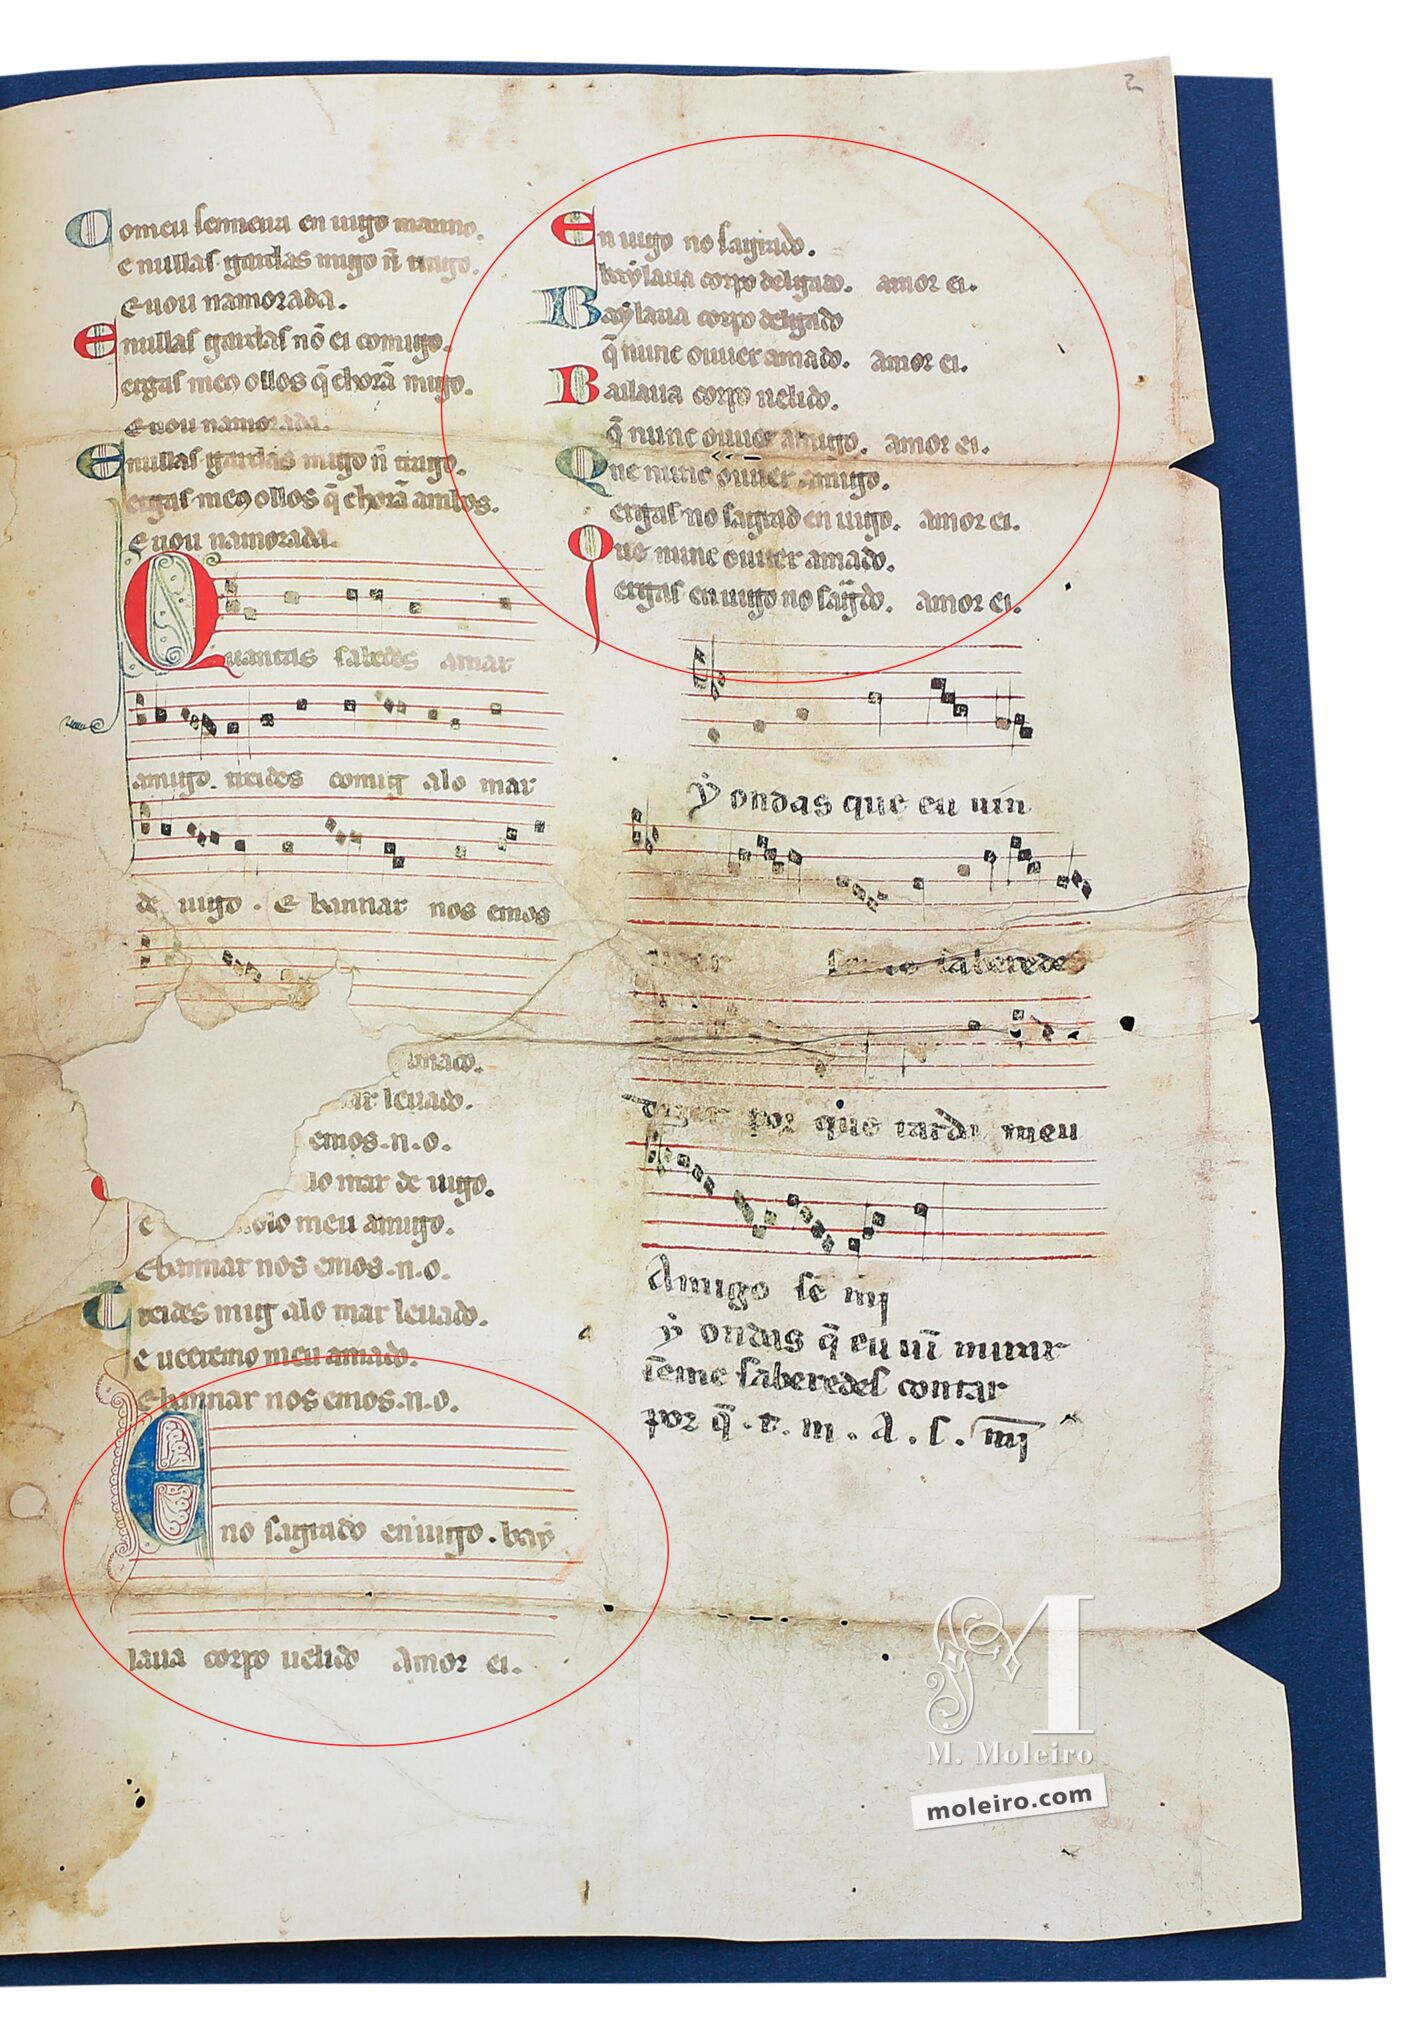 2
Comeu senneira en uigo manno.
e nullas gardas migo nẽ trago.
E uou namorada.
E nullas gardas nõ ei comigo.
ergas meꝯ ollos q̃ chorã migo.
E uou namorada.
E nullas gardas migo nẽ trago.
ergas meꝯ ollos q̃ chorã ambos.
E uou namorada.
Quantas sabedes amar
amigo. treides comig alo mar
de uigo. E bannar nos emos
amado.
ar leuado.
emos.n.o.
lo mar de uigo.
e olo meu amigo.
E bannar nos emos.n.o.
Treides mig alo mar leuado.
e ueeremo meu amado.
E bannar nos emos.n.o.
Eno sagrado en uigo. bay
laua corpo uelido Amor ei.
En uigo no sagrado.
baylaua corpo delgado. amor ei.
Baylaua corpo delgado
q̃ nunc ouuer amado. amor ei.
Bailaua corpo uelido.
q̃ nunc ouuer amigo. amor ei.
Que nunc ouuer amigo.
ergas no sagrad en uigo. amor ei.
Que nunc ouuer amado.
ergas en uigo no sagdo. amor ei.
ẏ ondas que eu uin
saberedes
dizer por que tarda meu
Amigo se mĩ
ẏ ondas q̃ eu uĩ mirar
seme saberedes contar
por q̃ . t. m . A . s .
M. Moleiro
moleiro.com